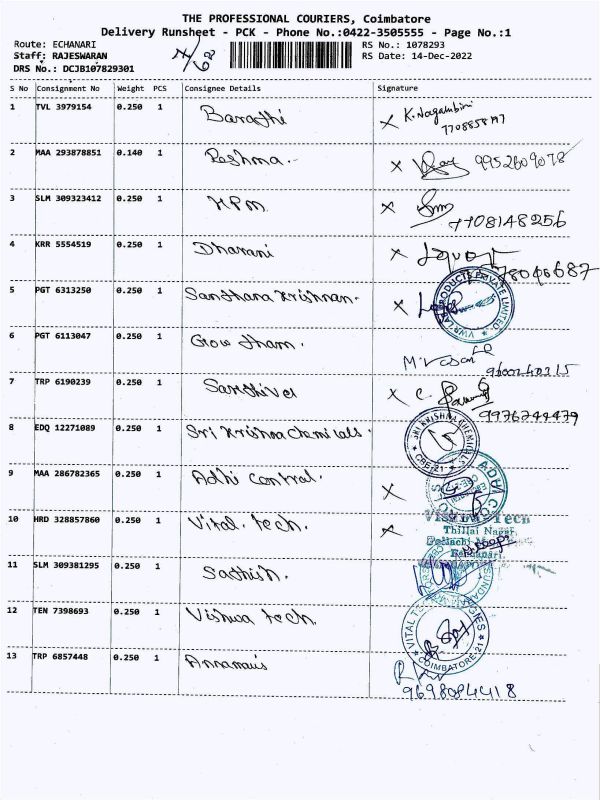 THE PROFESSIONAL COURIERS, Coimbatore
Delivery Runsheet - PCK - Phone No.:0422-3505555 - Page No.:1
Route: ECHANARI
RS No.: 1078293
Staff: RAJESWARAN
RS Date: 14-Dec-2022
DRS No.: DCJB107829301
S No Consignment No Weight PCS Consignee Details Signature
1 TVL 3979154 0.250 1 Barathi K. Nagambini
2 MAA 293878851 0.140 1 Reshma.- 9952609078
3 SLM 309323412 0.250 1 HPM
7708148256
4 KRR 5554519 0.250 1 Dharani
5 PGT 6313250 0.250 1 Santhana Krishnan.
6 PGT 6113047 0.250 1 Gowtham.
7 TRP 6190239 0.250 1 Sakthivel
9976744479
8 EDQ 12271089 0.250 1 Sri Krishna Chemicals.
SRI KRISHNA CHEMICALS
CBE-21
9 MAA 286782365 0.250 1 Adhi Control.
10 HRD 328857860 0.250 1 Vital. tech.
Thillai Nagar,
11 SLM 309381295 0.250 1 Sathish.
12 TEN 7398693 0.250 1 Vishwa tech.
VITAL TECHNOLOGIES
COIMBATORE-21
13 TRP 6857448 0.250 1
9698084418